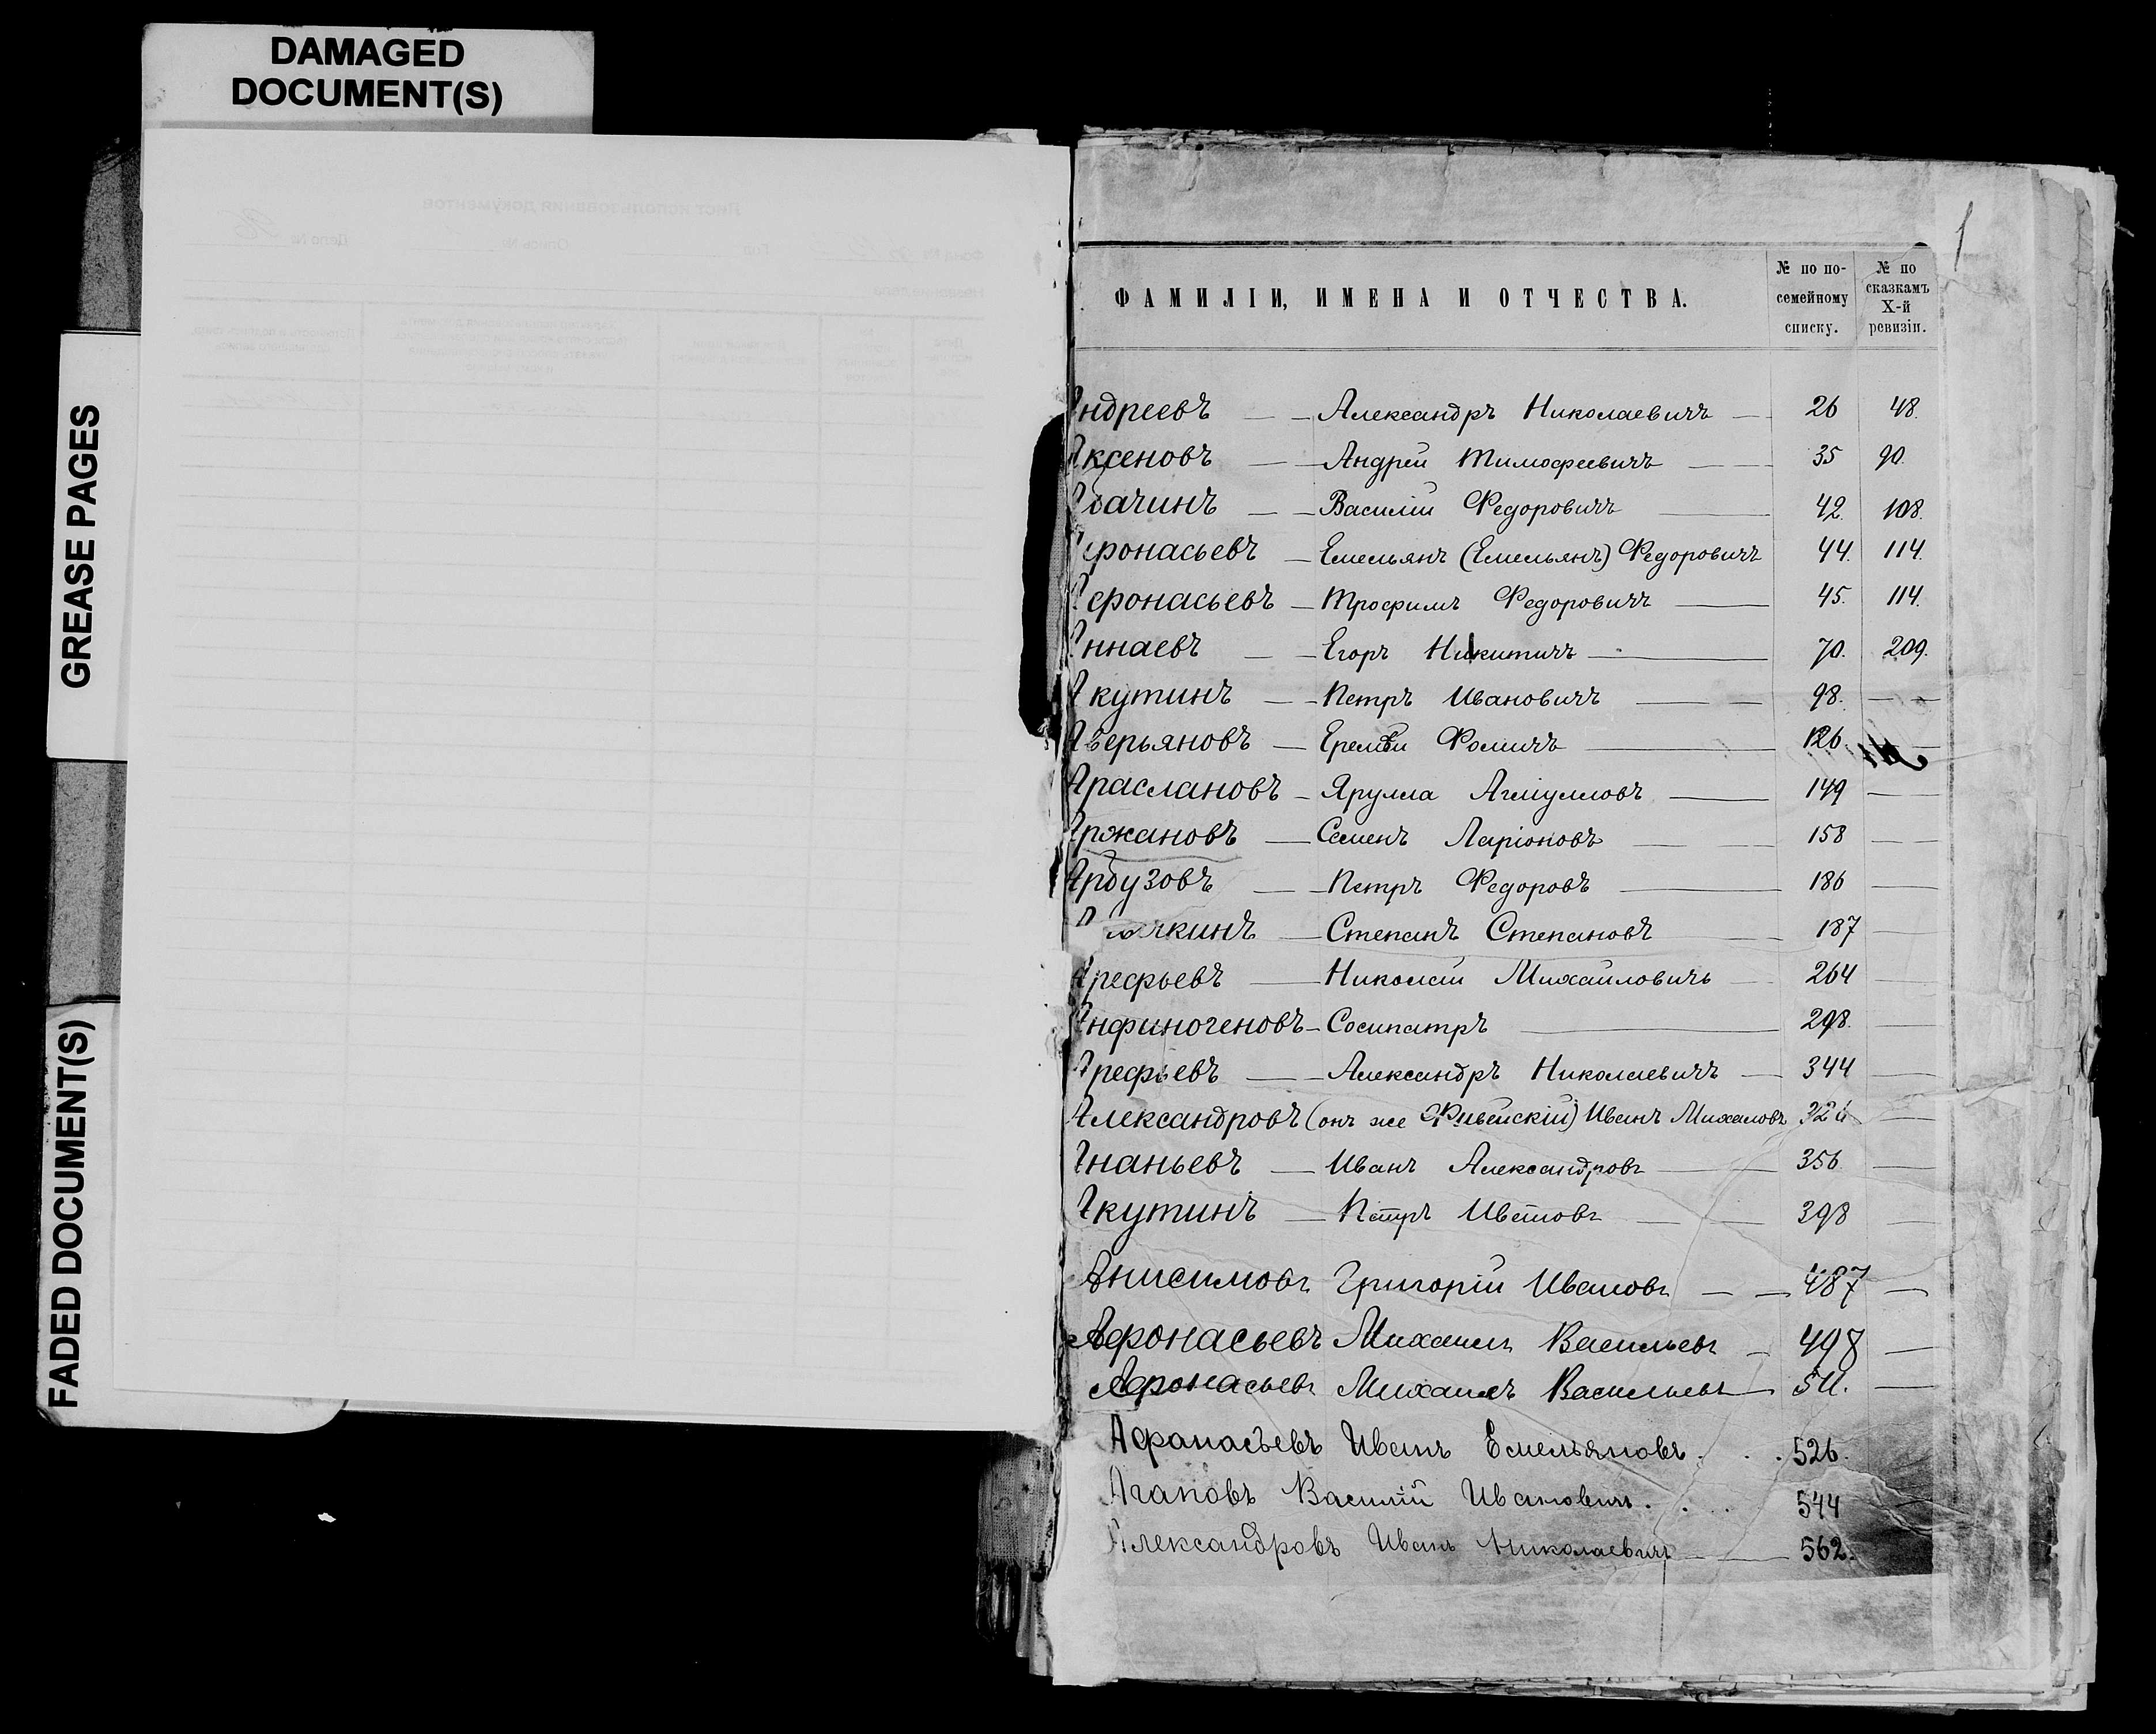 DAMAGED
DOCUMENT(S)
GREASE PAGES
FADED DOCUMENT(S)
1
ФАМИЛІИ, ИМЕНА И ОТЧЕСТВА.
№ по по-
семейному
списку.
№ по
сказкамъ
X-й
ревизіи.
Андреевъ — — Александръ Николаевичъ — 26 48.
Аксеновъ — — Андрей Тимофеевичъ — — 35 90.
Василій Федоровичъ — 42. 108.
Афонасьевъ — Емельянъ (Емельянъ) Федоровичъ 44. 114.
Афонасьевъ — Трофимъ Федоровичъ — 45. 114.
Аннаевъ — — Егоръ Никитичъ — 70. 209.
Акутинъ — — Петръ Ивановичъ — — 98. — —
Аверьяновъ — Фомичъ — 126 —
Араслановъ — Ярулла — 149 —
Аржановъ — Семенъ Ларіоновъ — — 158 — —
Арбузовъ — — Петръ Федоровъ — 186 —
Степанъ Степановъ — 187 —
Арефьевъ — Николай Михайловичъ — 264 —
Анфиногеновъ — Сосипатръ — 298. —
Арефьевъ — — Александръ Николаевичъ — 344 —
Александровъ (онъ же Фивейскій) Иванъ Михаиловъ —
Ананьевъ — Иванъ Александровъ — 356 —
Акутинъ — Петръ Ивановъ — — 398 —
Анисимовъ Григорій Ивановъ — — 487 —
Афонасьевъ Михаилъ Васильевъ — 498 —
Афонасьевъ Михаилъ Васильевъ — 511. —
Афанасьевъ Иванъ Емельяновъ . . . 526.
Агаповъ Василій Ивановичъ . . . 544
Александровъ Иванъ Николаевичъ — — 562.